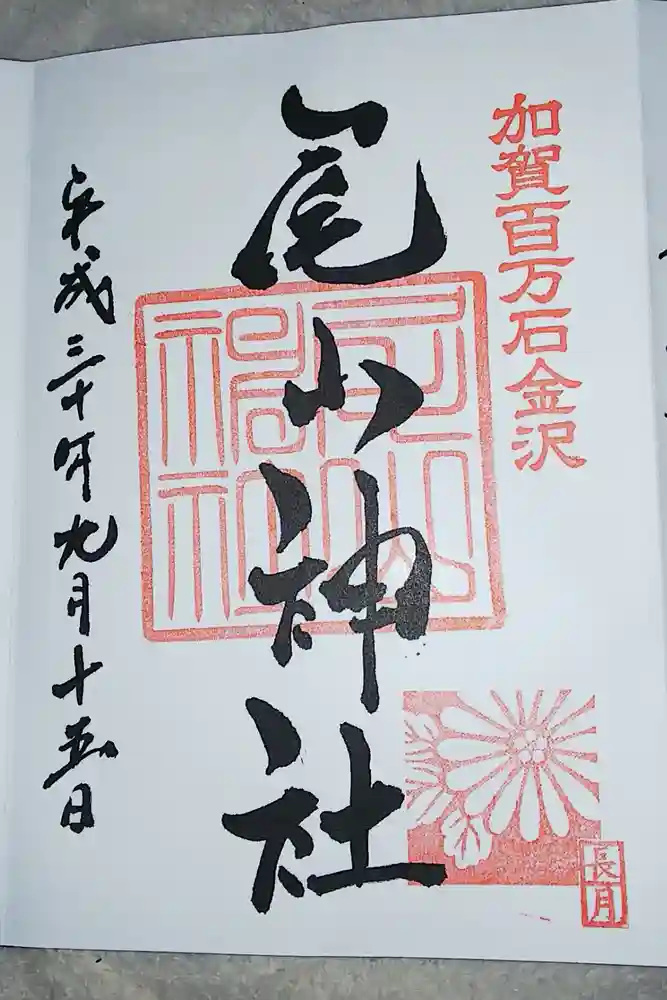 加賀百万石金沢
尾山神社
尾山神社
平成三十年九月十五日
長月